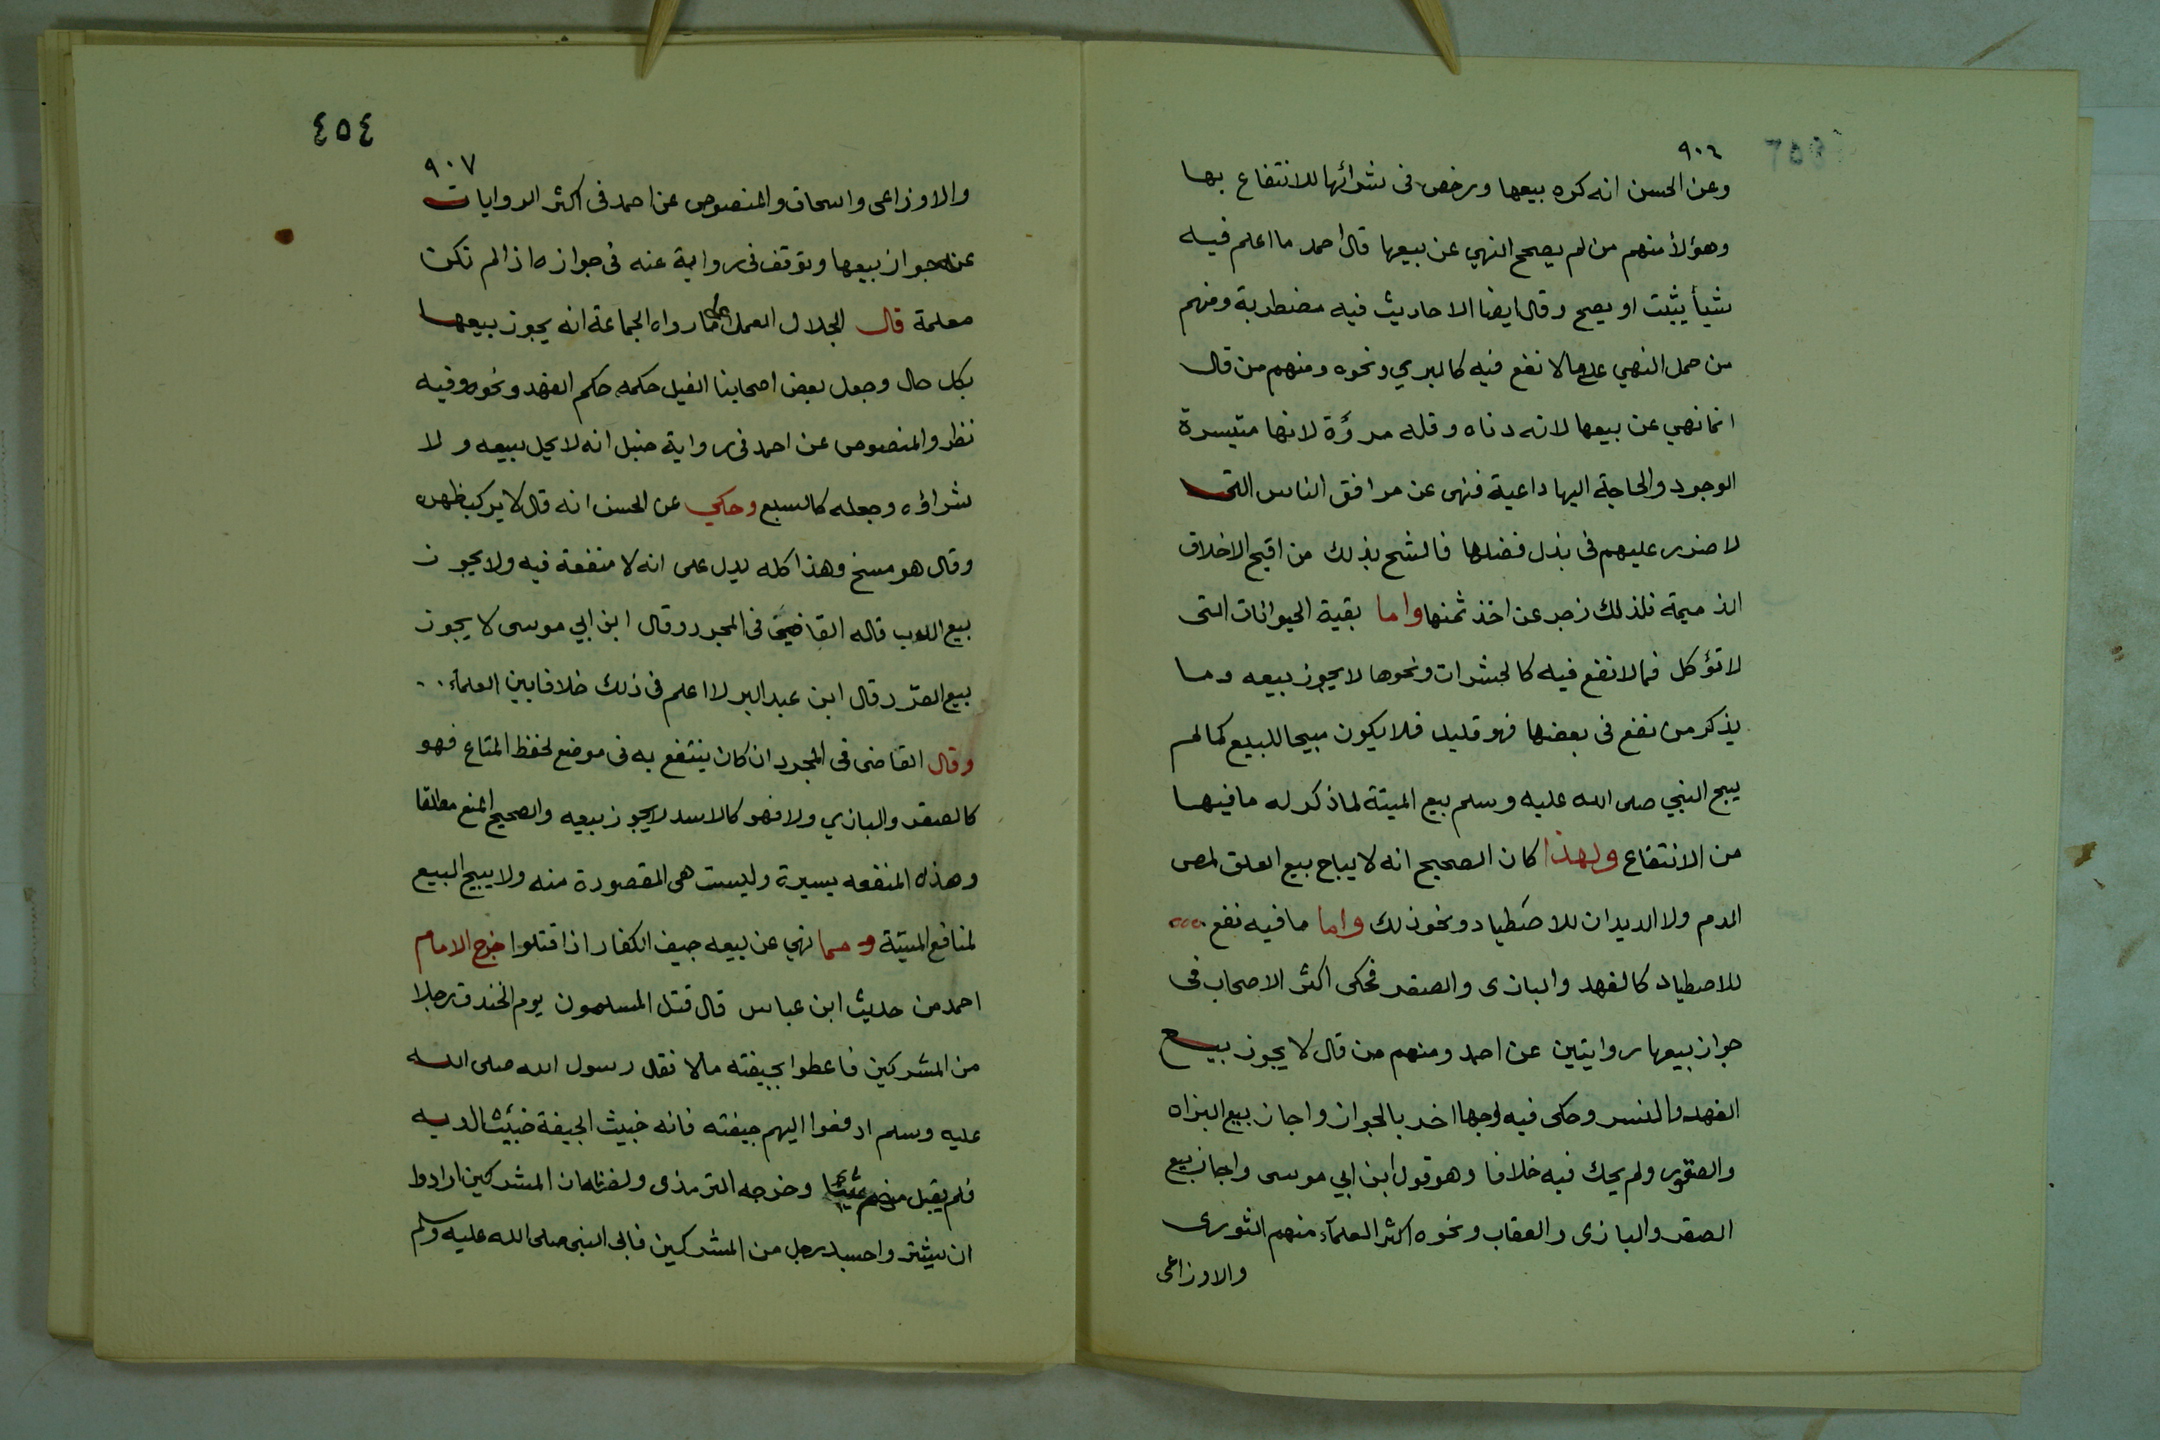 ٩٠٦
وعن الحسن انه كره بيعها ورخص فى شرائها للانتفاع بها
وهؤلأ منهم من لم يصحح النهي عن بيعها قال احمد ما اعلم فيه
شيأ يثبت او يصح وقال ايضا الاحاديث فيه مضطربة ومنهم
من حمل النهي على ما لا نفع فيه كالبري ونحوه ومنهم من قال
انما نهي عن بيعها لانه دناه وقله مروَّة لانها متيسرة
الوجود والحاجة اليها داعية فنهى عن مرافق الناس التى
لا ضرر عليهم فى بذل فضلها فالشح بذلك من اقبح الاخلاق
الذميمة فلذلك زجر عن اخذ ثمنها واما بقية الحيوانات التى
لا تؤكل فما لا نفع فيه كالحشرات ونحوها لا يجوز بيعه وما
يذكر من نفع فى بعضها فهو قليل فلا يكون مبيحا للبيع كما لم
يبح النبي صلى الله عليه وسلم بيع الميتة لما ذكر له ما فيها
من الانتفاع ولهذا كان الصحيح انه لا يباح بيع العلق لمص
الدم ولا الديدان للاصطياد ونحو ذلك واما ما فيه نفع
للاصطياد كالفهد والبازى والصقر فحكى اكثر الاصحاب فى
جواز بيعها روايتين عن احمد ومنهم من قال لا يجوز بيع
الفهد والنسر وحكى فيه وجها اخر بالجواز واجاز بيع البزاه
والصقور ولم يحك فيه خلافا وهو قول ابن ابي موسى واجاز بيع
الصقر والبازى والعقاب ونحوه اكثر العلمآء منهم الثورى
والاوزاعى
٤٥٤
٩٠٧
والاوزاعى واسحاق والمنصوص عن احمد فى اكثر الروايات
عنه جواز بيعها وتوقف فى رواية عنه فى جوازه اذا لم تكن
معلمة قال الجلال العمل على ما رواه الجماعة انه يجوز بيعها
بكل حال وجعل بعض اصحابنا الفيل حكمه حكم الفهد ونحوه وفيه
نظر والمنصوص عن احمد فى رواية حنبل انه لا يحل بيعه ولا
شراؤه وجعله كالسبع وحكي عن الحسن انه قال لا يركب ظهره
وقال هو مسخ وهذا كله يدل على انه لا منفعة فيه ولا يجوز
بيع الدب قاله القاضى فى المجرد وقال ابن ابي موسى لا يجوز
بيع القرد قال ابن عبد البر لا اعلم فى ذلك خلافا بين العلماء
وقال القاضى فى المجرد ان كان ينتفع به فى موضع لحفظ المتاع فهو
كالصقر والبازي ولا فهو كالاسد لا يجوز بيعه والصحيح المنع مطلقا
وهذه المنفعه يسيرة وليست هى المقصودة منه ولا يبيح البيع
لمنافع الميتة ومما نهي عن بيعه جيف الكفار اذا قتلوا خرج الامام
احمد من حديث ابن عباس قال قتل المسلمون يوم الخندق رجلا
من المشركين فاعطوا بجيفته مالا نقل رسول الله صلى الله
عليه وسلم ادفعوا اليهم جيفته فانه خبيث الجيفة خبيث الديه
فلم يقبل منهم شيئا وخرجه الترمذى ولفظه ان المشركين ارادوا
ان يشتروا جسد رجل من المشركين فابى النبى صلى الله عليه وسلم